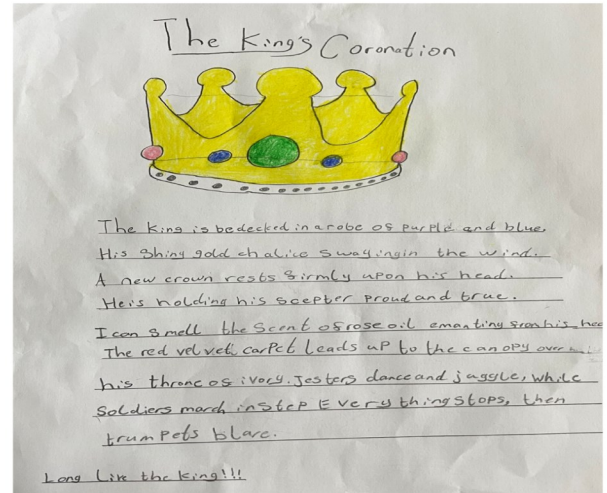 The King's Coronation
The King is bedecked in a robe of purple and blue.
His Shiny gold chalice swayingin the wind.
A new crown rests firmly upon his head.
He is holding his scepter proud and true.
I can smell the scent of rose oil emanting from his hea
The red velveti carpet leads up to the canopy over
his throne of ivory. Jesters dance and juggle, while
Soldiers march in step Everything stops, then
trumpets blare.
Long live the King!!!